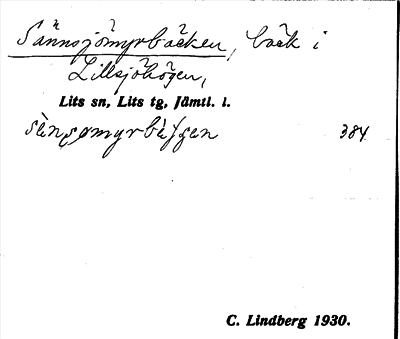 Sännsjömyrbäcken, bäck i
Lillsjöhögen,
Lits sn, Lits tg, Jämtl. l.
384
C. Lindberg 1930.